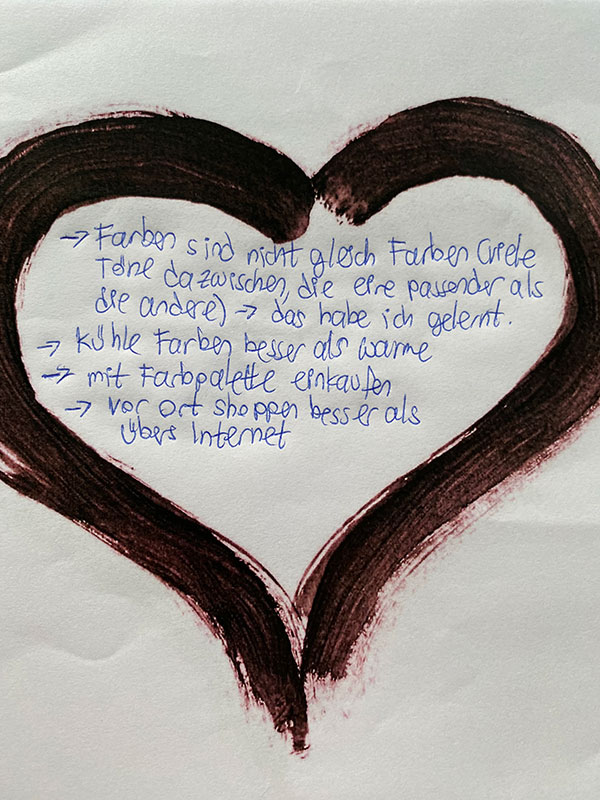 → Farben sind nicht gleich Farben (viele
Töne dazwischen, die eine passender als
die andere) → das habe ich gelernt.
→ Kühle Farben besser als warme
→ mit Farbpalette einkaufen
→ vor Ort shoppen besser als
übers Internet